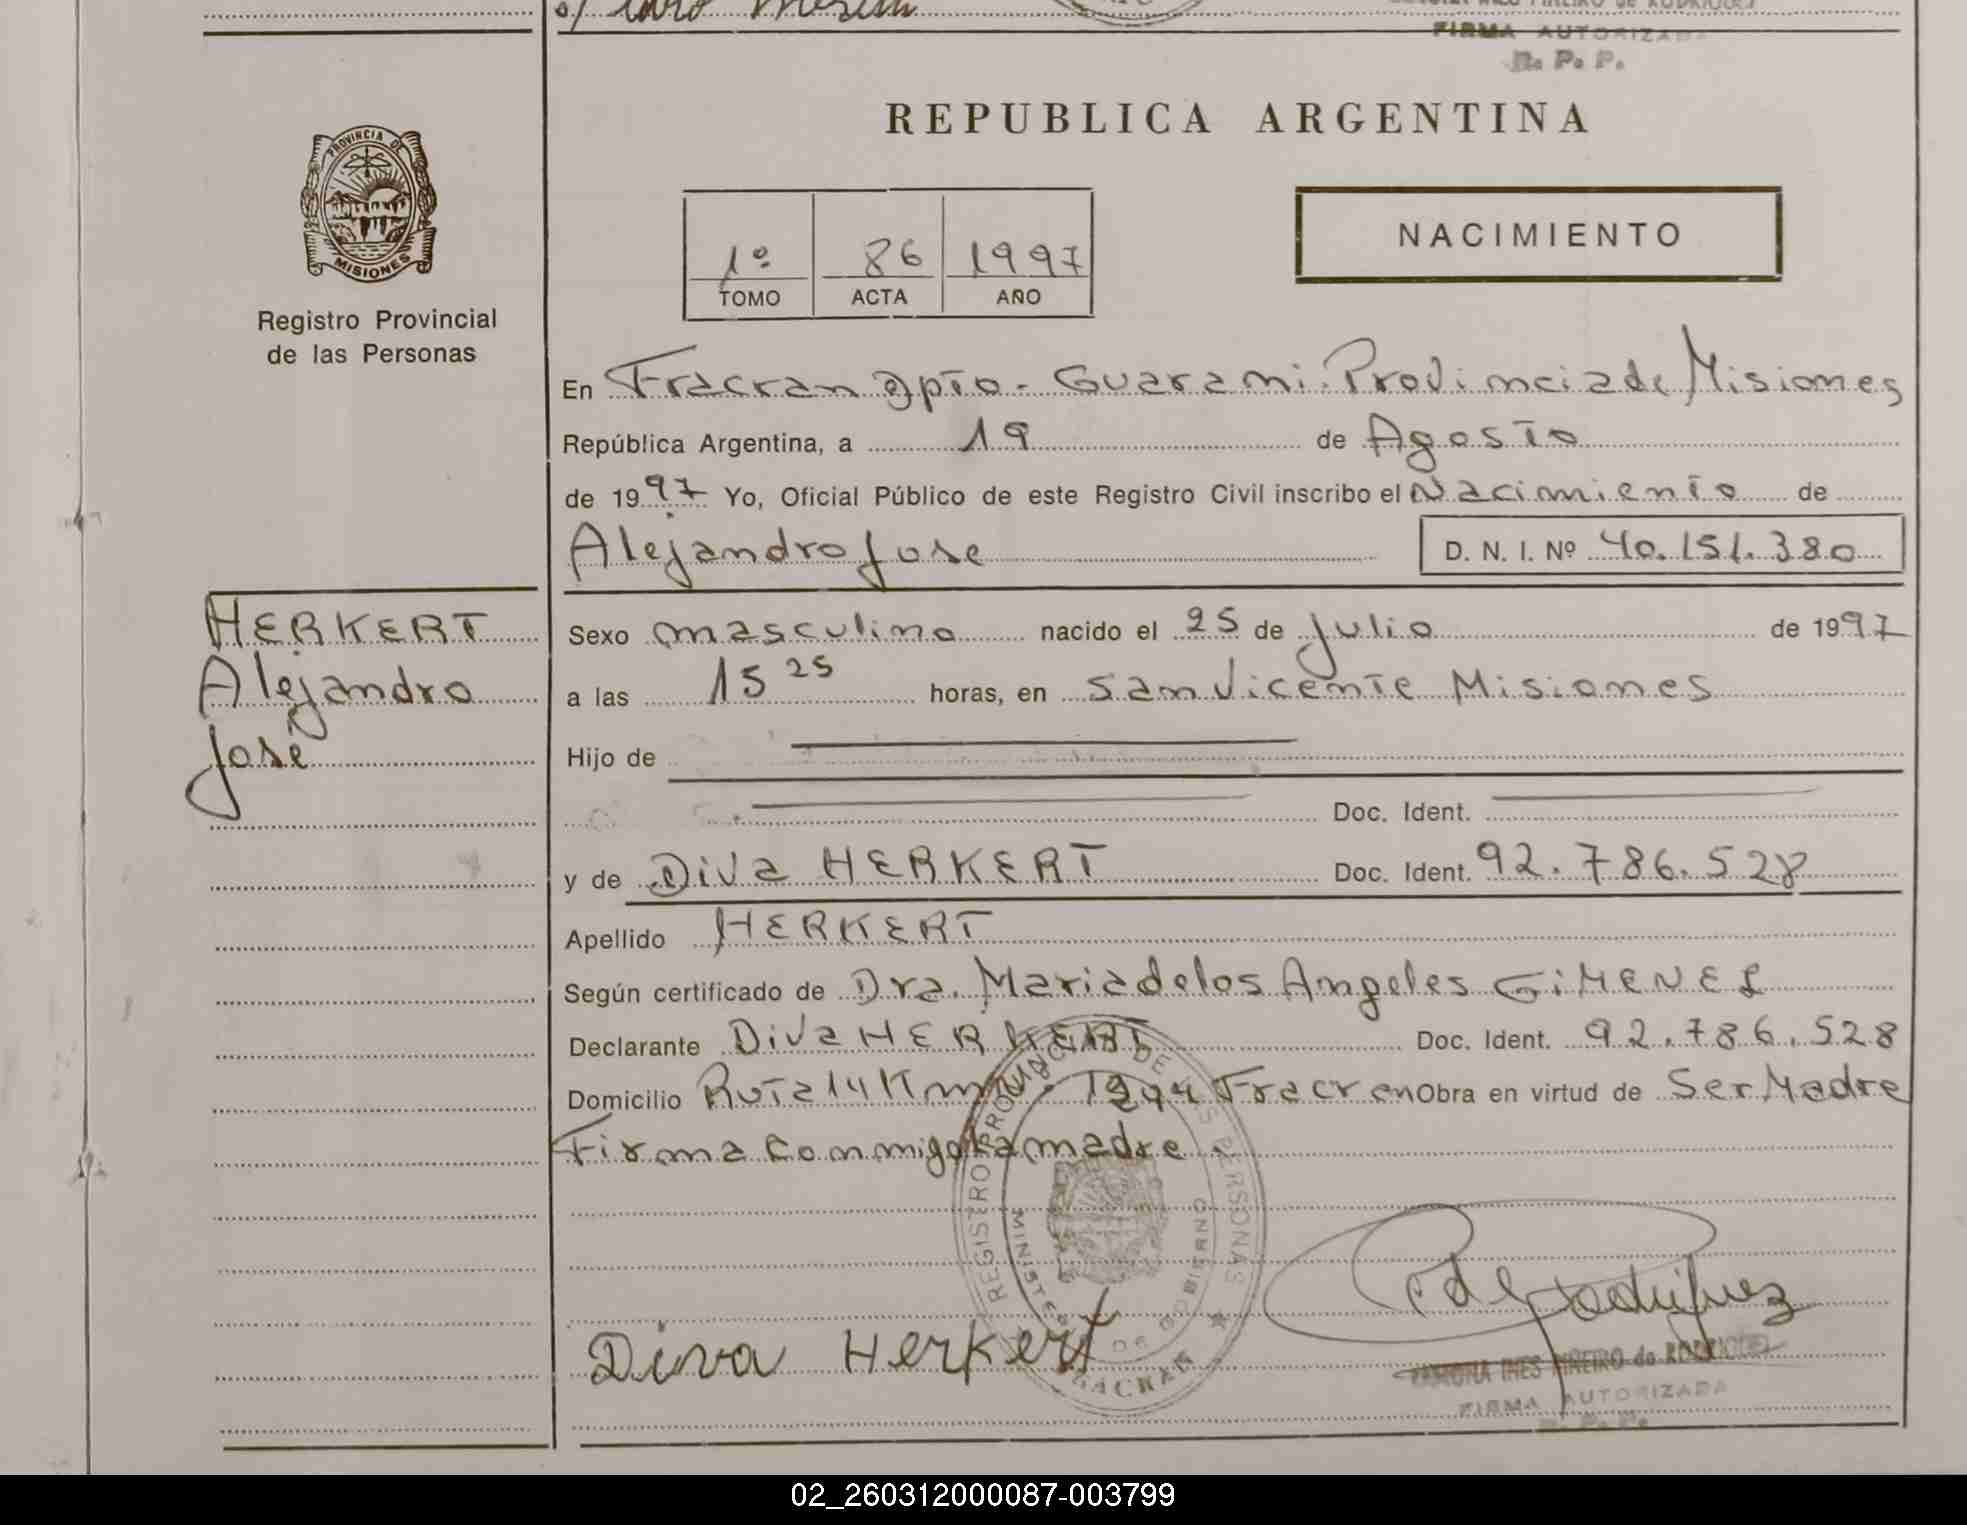 FIRMA AUTORIZADA
R. P. P.
REPUBLICA ARGENTINA
PROVINCIA DE
MISIONES
Registro Provincial
de las Personas
1º 86 1997
TOMO ACTA AÑO
NACIMIENTO
En Fracran Dpto. Guarami. Provincia de Misiones
República Argentina, a 19 de Agosto
de 1997 Yo, Oficial Público de este Registro Civil inscribo el Nacimiento de
Alejandro Jose D. N. I. Nº 40.151.380
HERKERT
Alejandro
José
Sexo masculino nacido el 25 de Julio de 1997
a las 15 25 horas, en San Vicente Misiones
Hijo de
Doc. Ident.
y de Diva HERKERT Doc. Ident. 92.786.528
Apellido HERKERT
Según certificado de Dra. Maria de los Angeles GiMENEZ
Declarante Diva HERKERT Doc. Ident. 92.786.528
Domicilio Ruta 14 Km 1244 Fracran Obra en virtud de Ser Madre
Firma Conmigo la madre
REGISTRO PROVINCIAL DE LAS PERSONAS
MINISTERIO DE GOBIERNO
Diva Herkert
RAMONA INES PIREIRO de RODRIGUEZ
FIRMA AUTORIZADA
R. P. P.
02_260312000087-003799